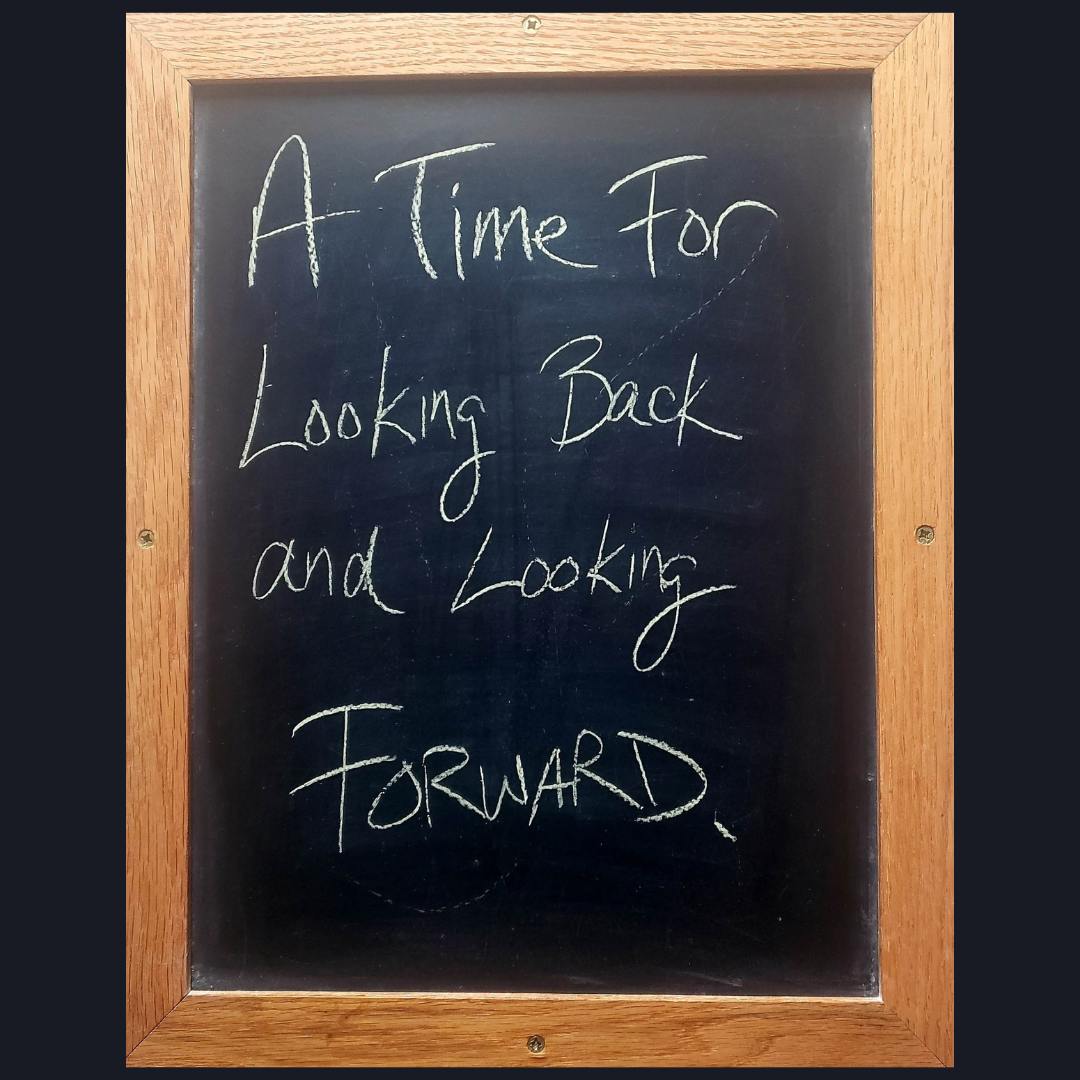 A Time For
Looking Back
and Looking
FORWARD.